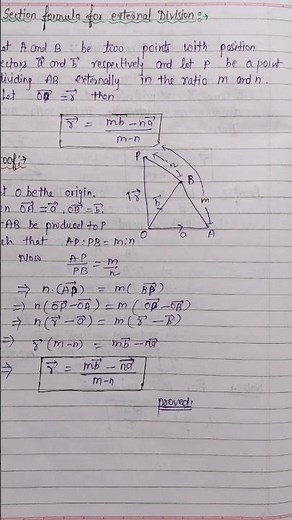 Section formula for external Division :-
et A and B be two points with position
ectors a⃗ and b⃗ respectively and let P be a point
dividing AB externally in the ratio m and n.
Let OP⃗ = r⃗ then
r⃗ = (mb⃗ - na⃗)/(m-n)
oof:-
t O be the origin.
en OA⃗ = a⃗, OB⃗ = b⃗.
AB be produced to P
ch that AP:PB = m:n
Now AP/PB = m/n
⇒ n.(AP⃗) = m(BP⃗)
⇒ n(OP⃗ - OA⃗) = m(OP⃗ - OB⃗)
⇒ n(r⃗ - a⃗) = m(r⃗ - b⃗)
⇒ r⃗(m-n) = mb⃗ - na⃗
⇒ r⃗ = (mb⃗ - na⃗)/(m-n)
proved.
P
n
B
m
r⃗
b⃗
O
a
A